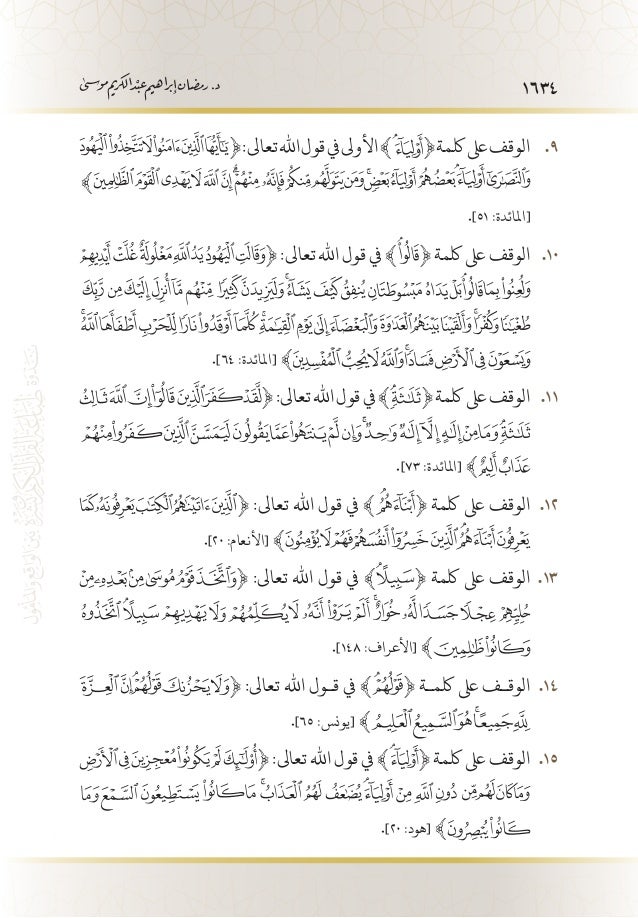 ١٦٣٤ د. رمضان إبراهيم عبد الكريم موسى
٩. الوقف على كلمة ﴿أَوۡلِيَآءَۘ﴾ الأولى في قول الله تعالى: ﴿يَٰٓأَيُّهَا ٱلَّذِينَ ءَامَنُواْ لَا تَتَّخِذُواْ ٱلۡيَهُودَ
وَٱلنَّصَٰرَىٰٓ أَوۡلِيَآءَۘ بَعۡضُهُمۡ أَوۡلِيَآءُ بَعۡضٖۚ وَمَن يَتَوَلَّهُم مِّنكُمۡ فَإِنَّهُۥ مِنۡهُمۡۗ إِنَّ ٱللَّهَ لَا يَهۡدِي ٱلۡقَوۡمَ ٱلظَّٰلِمِينَ﴾
[المائدة: ٥١].
١٠. الوقف على كلمة ﴿قَالُواْۘ﴾ في قول الله تعالى: ﴿وَقَالَتِ ٱلۡيَهُودُ يَدُ ٱللَّهِ مَغۡلُولَةٌۚ غُلَّتۡ أَيۡدِيهِمۡ
وَلُعِنُواْ بِمَا قَالُواْۘ بَلۡ يَدَاهُ مَبۡسُوطَتَانِ يُنفِقُ كَيۡفَ يَشَآءُۚ وَلَيَزِيدَنَّ كَثِيرٗا مِّنۡهُم مَّآ أُنزِلَ إِلَيۡكَ مِن رَّبِّكَ
طُغۡيَٰنٗا وَكُفۡرٗاۚ وَأَلۡقَيۡنَا بَيۡنَهُمُ ٱلۡعَدَٰوَةَ وَٱلۡبَغۡضَآءَ إِلَىٰ يَوۡمِ ٱلۡقِيَٰمَةِۚ كُلَّمَآ أَوۡقَدُواْ نَارٗا لِّلۡحَرۡبِ أَطۡفَأَهَا ٱللَّهُۚ
وَيَسۡعَوۡنَ فِي ٱلۡأَرۡضِ فَسَادٗاۚ وَٱللَّهُ لَا يُحِبُّ ٱلۡمُفۡسِدِينَ﴾ [المائدة: ٦٤].
١١. الوقف على كلمة ﴿ثَلَٰثَةٖۘ﴾ في قول الله تعالى: ﴿لَّقَدۡ كَفَرَ ٱلَّذِينَ قَالُوٓاْ إِنَّ ٱللَّهَ ثَالِثُ
ثَلَٰثَةٖۘ وَمَا مِنۡ إِلَٰهٍ إِلَّآ إِلَٰهٞ وَٰحِدٞۚ وَإِن لَّمۡ يَنتَهُواْ عَمَّا يَقُولُونَ لَيَمَسَّنَّ ٱلَّذِينَ كَفَرُواْ مِنۡهُمۡ
عَذَابٌ أَلِيمٌ﴾ [المائدة: ٧٣].
١٢. الوقف على كلمة ﴿أَبۡنَآءَهُمُۘ﴾ في قول الله تعالى: ﴿ٱلَّذِينَ ءَاتَيۡنَٰهُمُ ٱلۡكِتَٰبَ يَعۡرِفُونَهُۥ كَمَا
يَعۡرِفُونَ أَبۡنَآءَهُمُۘ ٱلَّذِينَ خَسِرُوٓاْ أَنفُسَهُمۡ فَهُمۡ لَا يُؤۡمِنُونَ﴾ [الأنعام: ٢٠].
١٣. الوقف على كلمة ﴿سَبِيلًاۘ﴾ في قول الله تعالى: ﴿وَٱتَّخَذَ قَوۡمُ مُوسَىٰ مِنۢ بَعۡدِهِۦ مِنۡ
حُلِيِّهِمۡ عِجۡلٗا جَسَدٗا لَّهُۥ خُوَارٌۚ أَلَمۡ يَرَوۡاْ أَنَّهُۥ لَا يُكَلِّمُهُمۡ وَلَا يَهۡدِيهِمۡ سَبِيلًاۘ ٱتَّخَذُوهُ
وَكَانُواْ ظَٰلِمِينَ﴾ [الأعراف: ١٤٨].
١٤. الوقف على كلمة ﴿قَوۡلُهُمۡۘ﴾ في قول الله تعالى: ﴿وَلَا يَحۡزُنكَ قَوۡلُهُمۡۘ إِنَّ ٱلۡعِزَّةَ
لِلَّهِ جَمِيعًاۚ هُوَ ٱلسَّمِيعُ ٱلۡعَلِيمُ﴾ [يونس: ٦٥].
١٥. الوقف على كلمة ﴿أَوۡلِيَآءَۘ﴾ في قول الله تعالى: ﴿أُوْلَٰٓئِكَ لَمۡ يَكُونُواْ مُعۡجِزِينَ فِي ٱلۡأَرۡضِ
وَمَا كَانَ لَهُم مِّن دُونِ ٱللَّهِ مِنۡ أَوۡلِيَآءَۘ يُضَٰعَفُ لَهُمُ ٱلۡعَذَابُۚ مَا كَانُواْ يَسۡتَطِيعُونَ ٱلسَّمۡعَ وَمَا
كَانُواْ يُبۡصِرُونَ﴾ [هود: ٢٠].